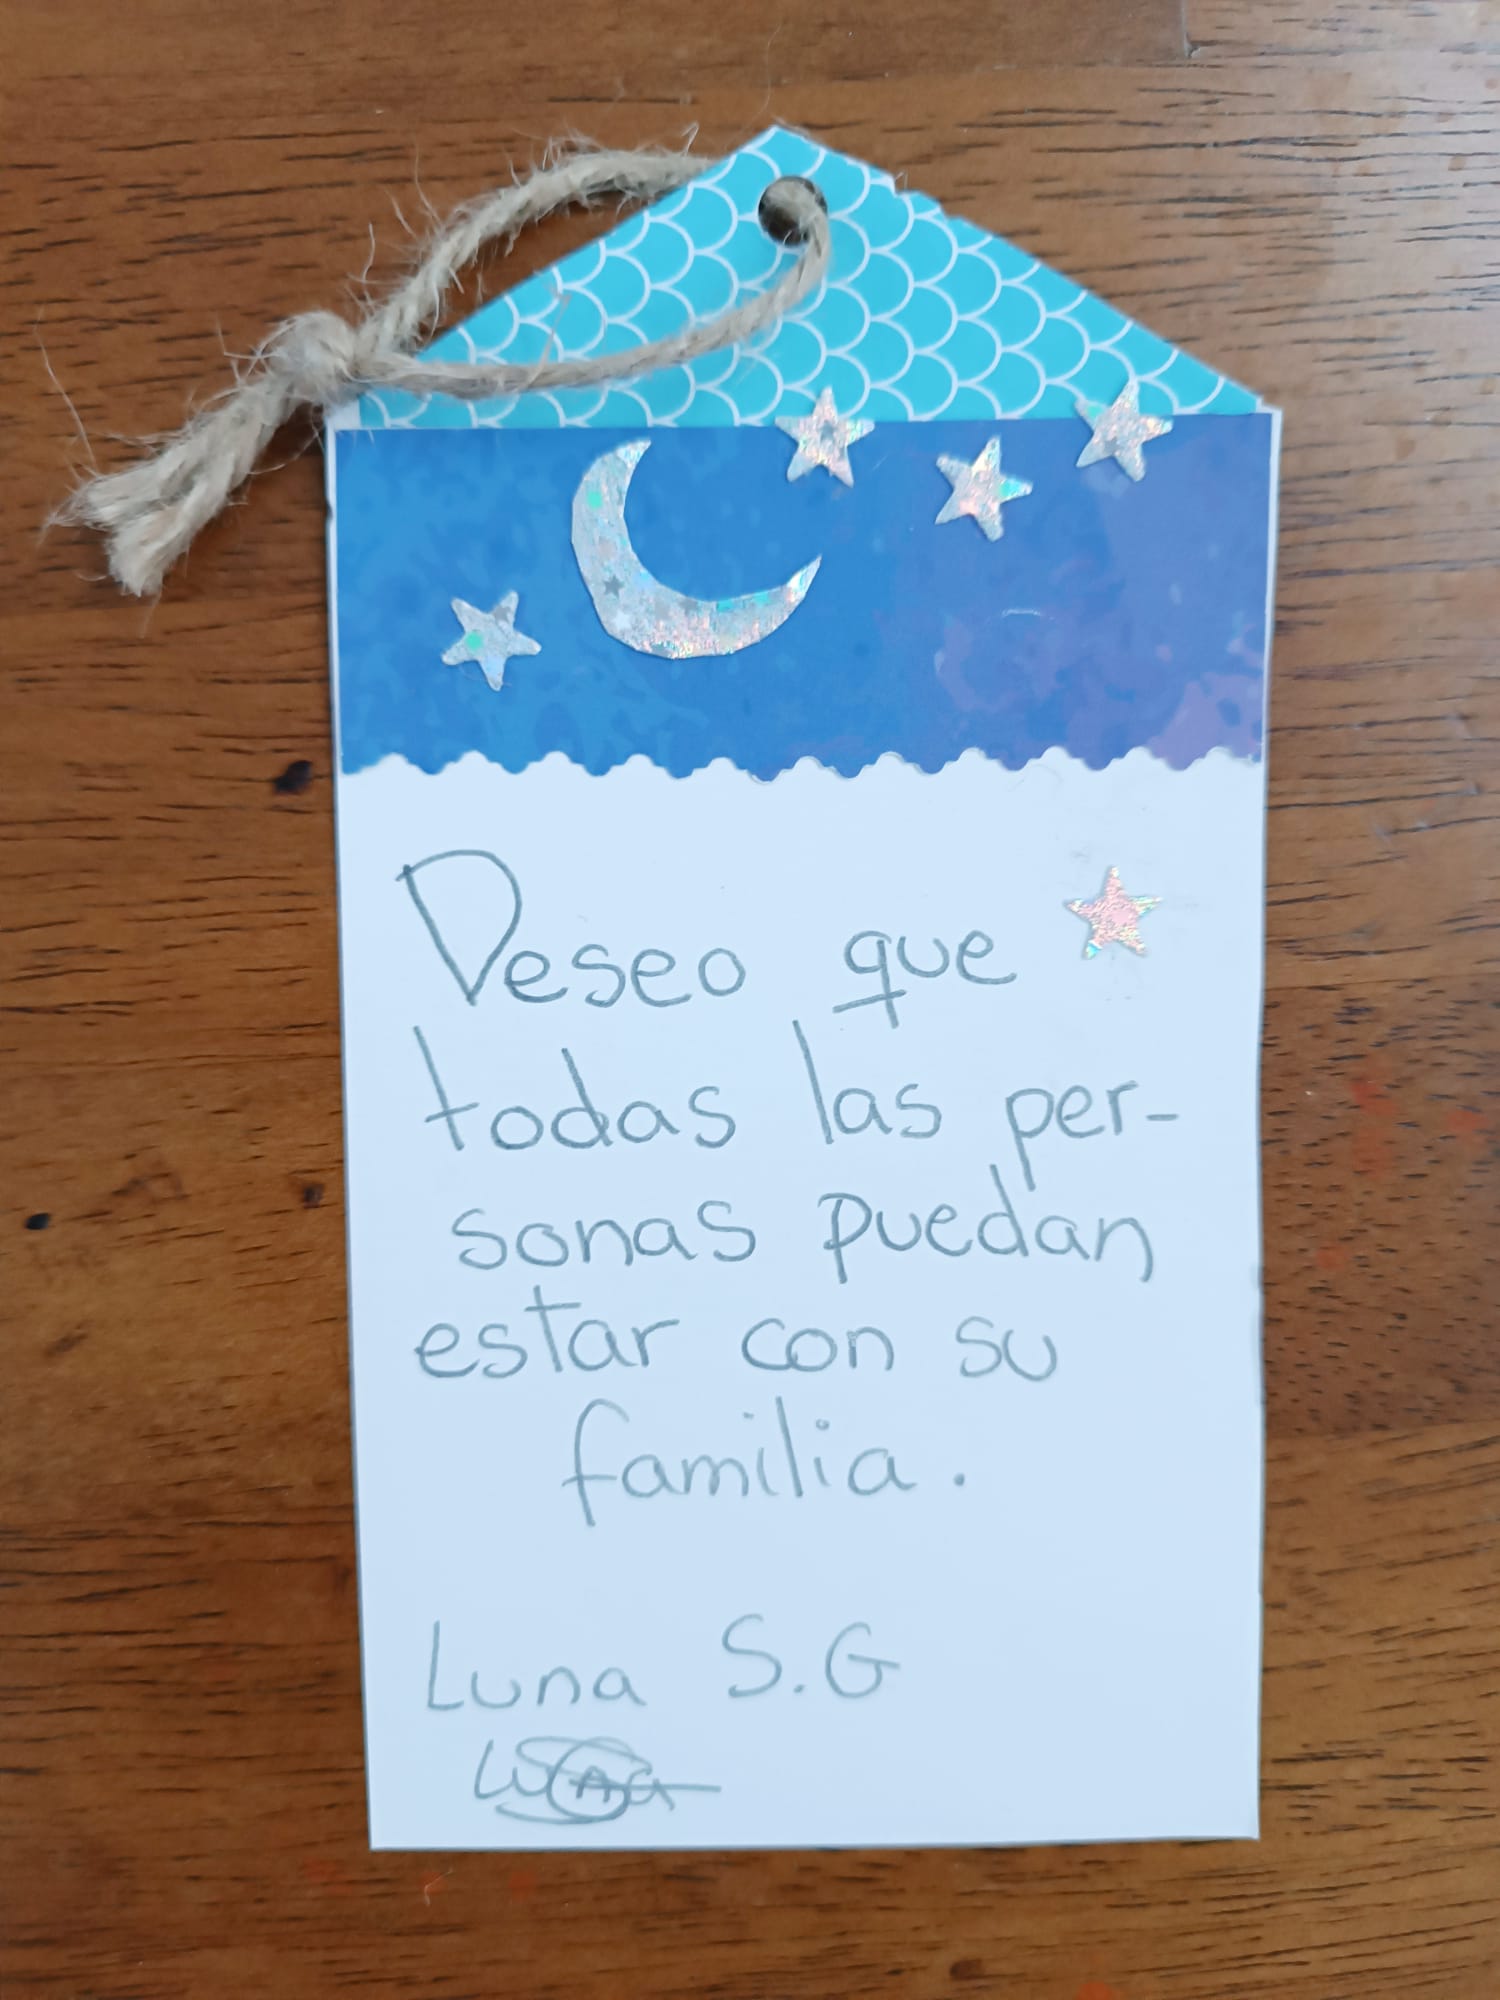 Deseo que
todas las per-
sonas puedan
estar con su
familia.
Luna S.G